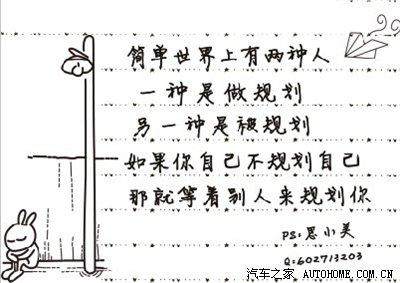 简单世界上有两种人
一种是做规划
另一种是被规划
如果你自己不规划自己
那就等着别人来规划你
PS:思小美
Q:602713203
汽车之家 AUTOHOME.COM.CN